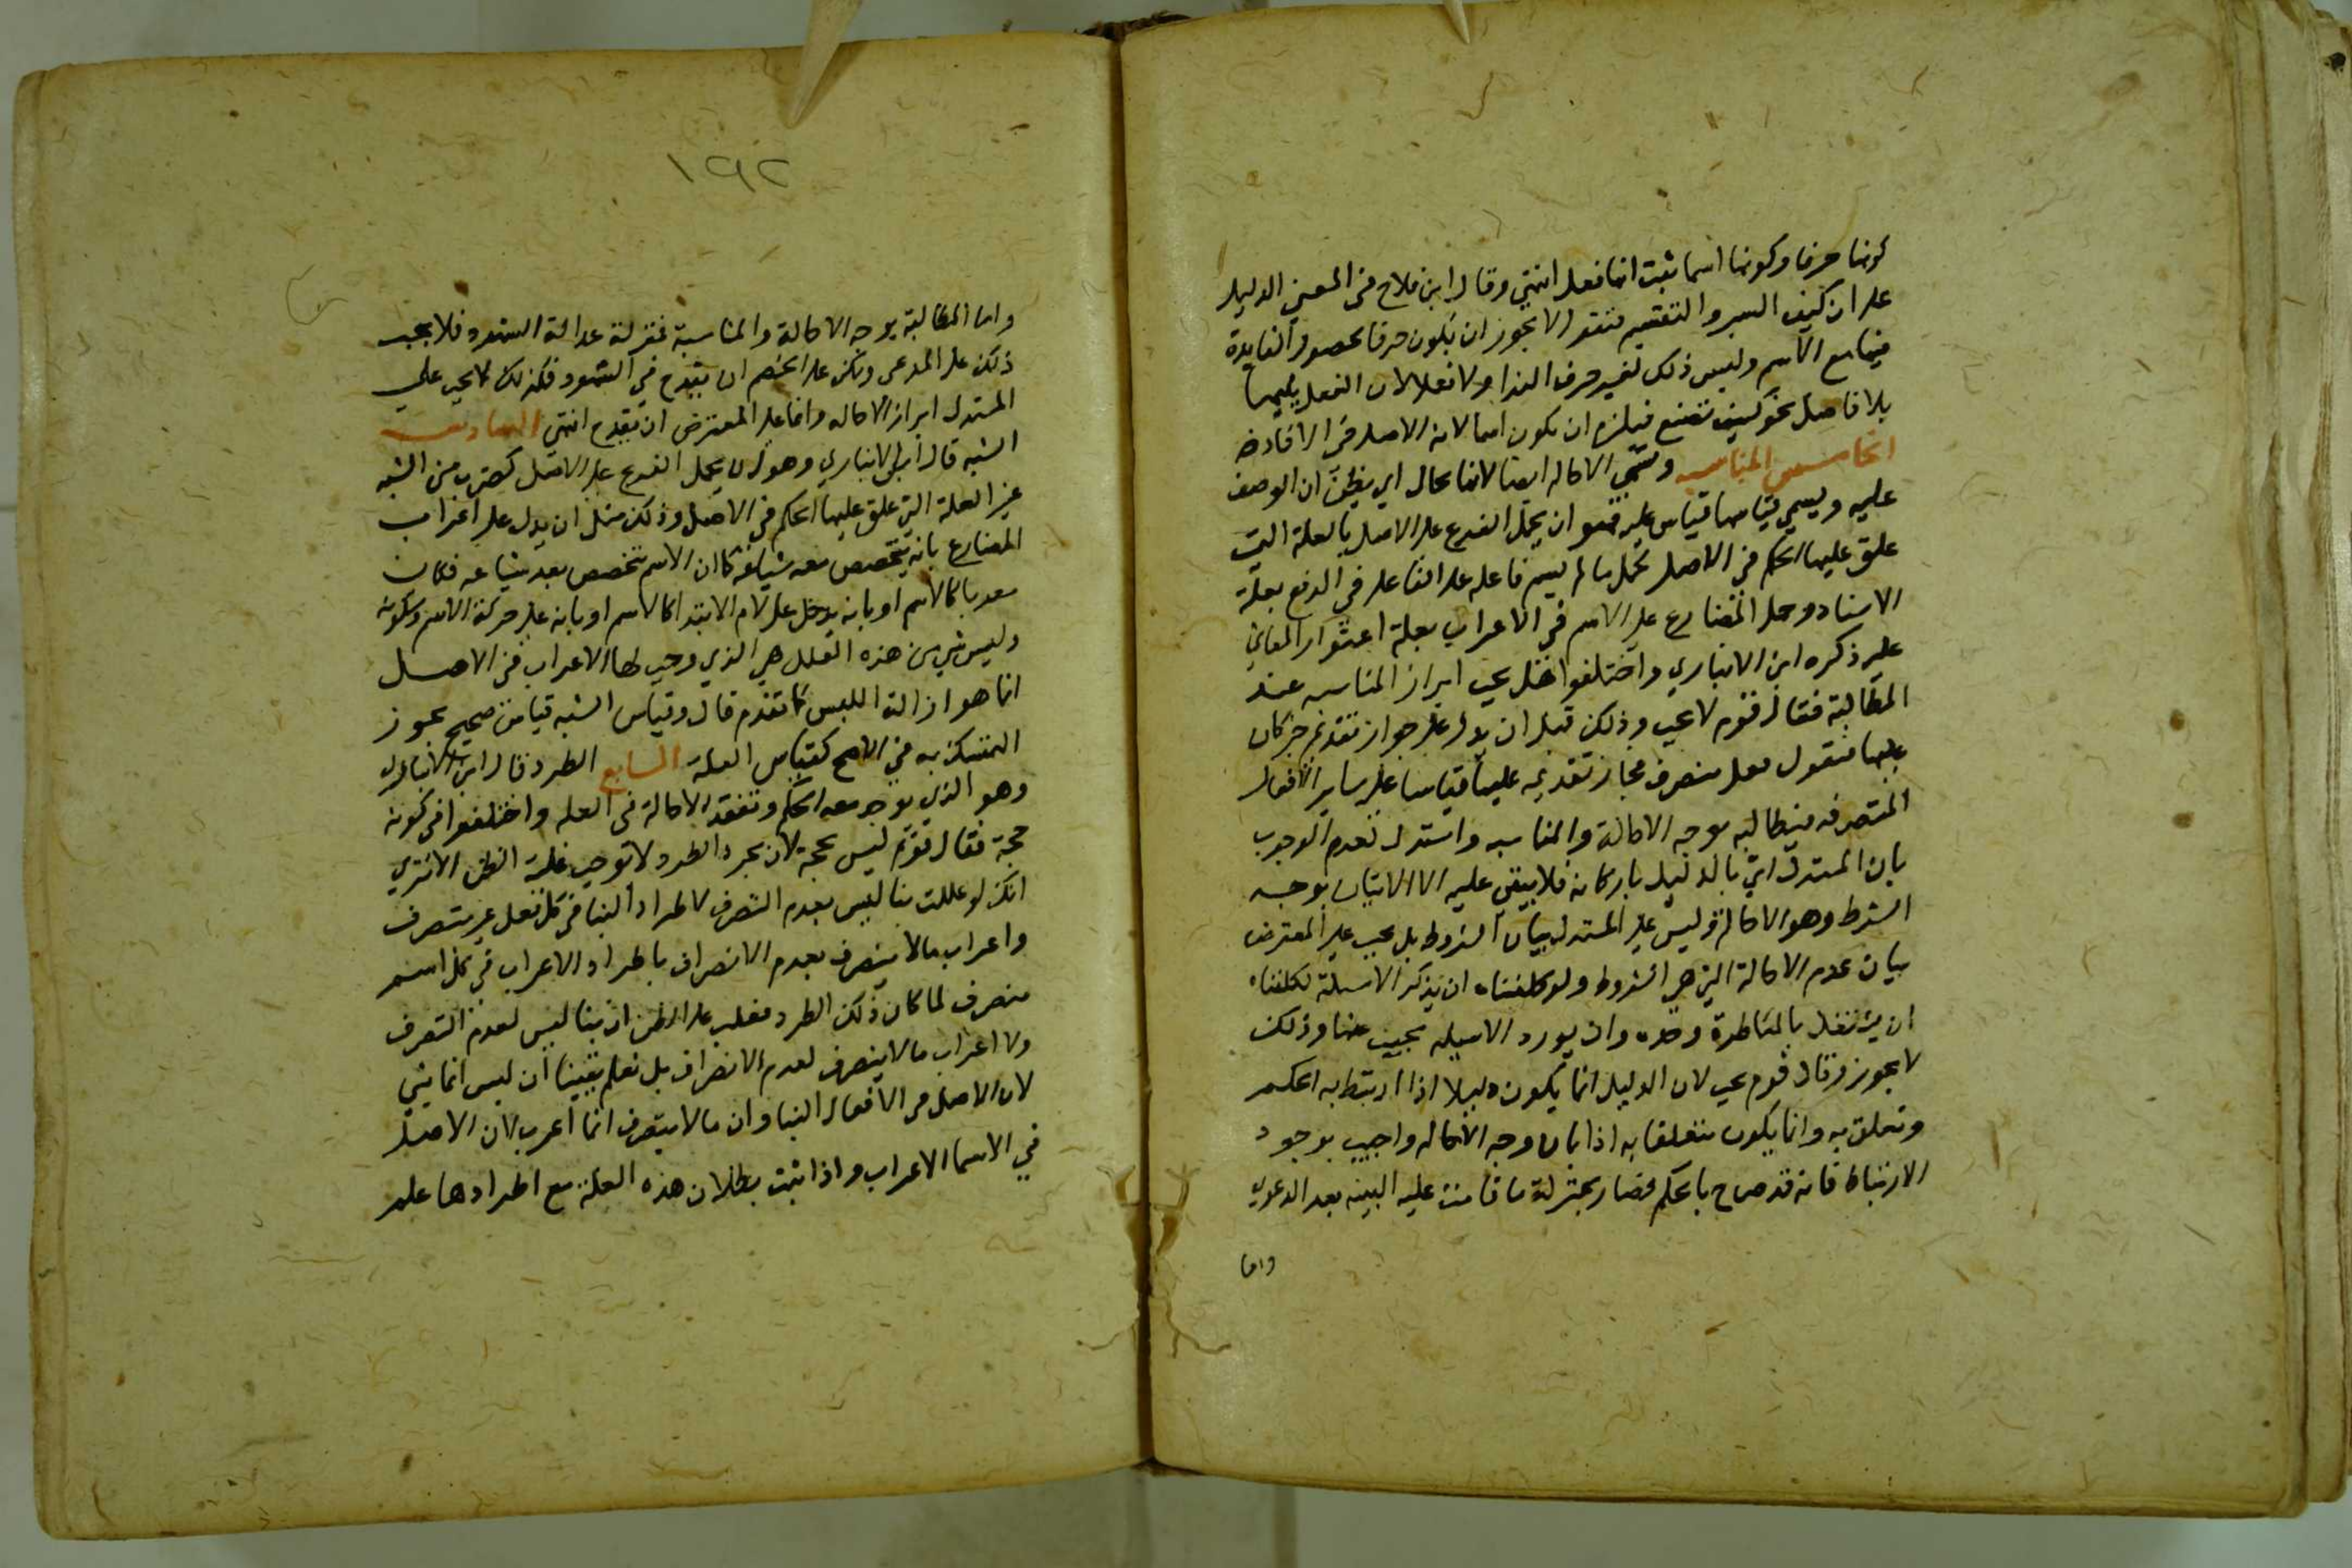 كونها حرفا وكونها اسما ثبت انها فعل انتهي وقال ابن فلاح في المغني الدليل
على ان كيف السبر والتقسيم فنقول لا يجوز ان يكون حرفا لحصول الفايدة
منها مع الاسم وليس ذلك لغير حرف الندا ولا فعلا لان الفعل يليها
بلا فاصل نحو كيف تصنع فيلزم ان يكون اسما لانه الاصل في الافادة
الخامس المناسبة وتسمي الاخالة ايضا لانها يخال اي يظن ان الوصف
عليه ويسمي قياسها قياس علة فهو ان يحمل الفرع على الاصل بالعلة التي
علق عليها الحكم في الاصل كحمل ما لم يسم فاعله على الفاعل في الرفع بعلة
الاسناد وحمل المضارع على الاسم في الاعراب بعلة اعتوار المعاني
عليه ذكره ابن الانباري واختلفوا هل يجب ابراز المناسبه عند
المطالبة فقال قوم لا يجب وذلك قبل ان يدل على جواز تقديم خبر كان
عليها فنقول فعل متصرف فجاز تقديمه عليها قياسا على ساير الافعال
المتصرفه فيطالبه بوجه الاخالة والمناسبه واستدل لعدم الوجوب
بان المستدل اتي بالدليل باركانه فلا يبقي عليه الا الاتيان بوجه
الشرط وهو الاخالة وليس على المستدل بيان الشروط بل يجب على المعترض
بيان عدم الاخالة التي هي الشروط ولو كلفناه ان يذكر الاسيلة لكلفناه
ان يشتغل بالمناظرة وحده وان يورد الاسيله يجيب عنها وذلك
لا يجوز وقال قوم يجب لان الدليل انما يكون دليلا اذا ارتبط به الحكم
وتعلق به وانما يكون متعلقا به اذا بان وجه الاخاله واجيب بوجود
الارتباط فانه قد صرح بالحكم فصار بمنزلة ما قامت عليه البينه بعد الدعوي
واما
١٩٢
واما المطالبة بوجه الاخالة والمناسبة فمنزلة عدالة الشهود فلا يجب
ذلك على المدعي ولكن على الخصم ان يقدح في الشهود فكذلك لا يجب علي
المستدل ابراز الاخاله وانما على المعترض ان يقدح انتهي السادس
الشبه قال ابن الانباري وهو ان يحمل الفرع على الاصل كضرب من الشبه
غير العلة التي علق عليها الحكم في الاصل وذلك مثل ان يدل على اعراب
المضارع بانه يتخصص بعد شياعه كما ان الاسم يتخصص بعد شياعه فكان
معربا كالاسم او بانه يدخل عليه لام الابتدا كالاسم او بانه على حركة الاسم وسكونه
وليس شي من هذه العلل هي الذي وجب لها الاعراب في الاصل
انما هو ازالة اللبس كما تقدم قال وقياس الشبه قياس صحيح يجوز
التمسك به في الاصح كقياس العلة السابع الطرد قال ابن الانباري
وهو الذي يوجد معه الحكم وتفقد الاخالة في العله واختلفوا في كونه
حجة فقال قوم ليس بحجة لان مجرد الطرد لا توجب غلبة الظن الا تري
انك لو عللت بنا ليس بعدم التصرف لاطراد البنا في كل فعل غير متصرف
واعراب ما لا ينصرف بعدم الانصراف باطراد الاعراب في كل اسم
منصرف لما كان ذلك الطرد مغلب على الظن ان بنا ليس لعدم التصرف
ولا اعراب ما لا ينصرف لعدم الانصراف بل نعلم يقينا ان ليس انما بني
لان الاصل في الافعال البنا وان ما لا ينصرف انما اعرب لان الاصل
في الاسما الاعراب واذا ثبت بطلان هذه العلة مع اطرادها علم